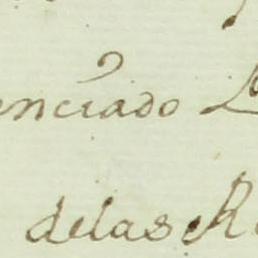 enciado
delas R